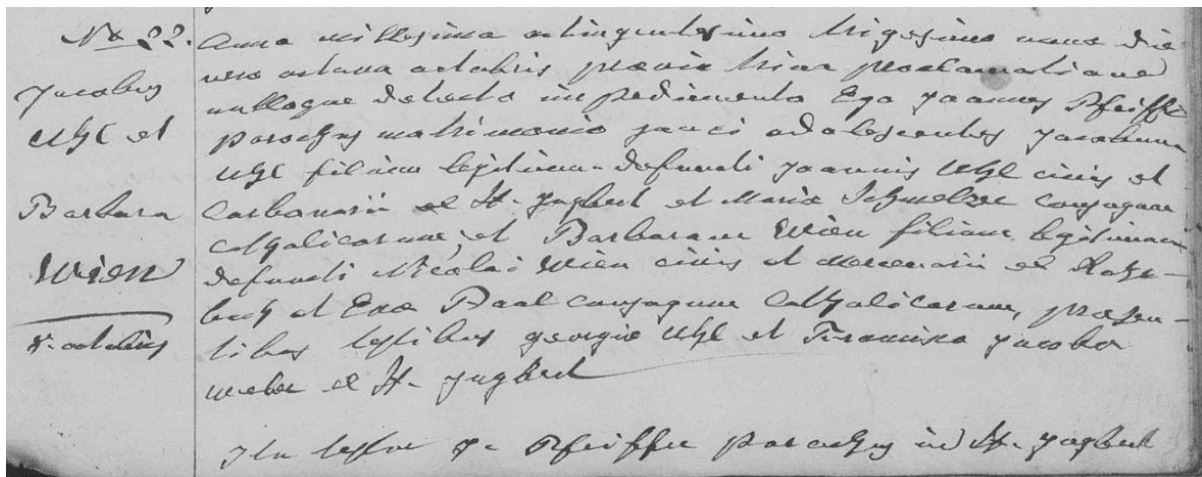 No 22.
Jacobus
Uhl et
Barbara
Wien
8. octobris
Anno millesimo octingentesimo trigesimo nono die
vero octava octobris prævia trina proclamatione
nulloque detecto impedimento Ego Joannes Pfeiffer
parochus matrimonio junxi adolescentes Jacobum
Uhl filium legitimum defuncti Joannis Uhl civis et
carbonarii ex St. Ingbert et Mariæ Schmelzer conjugum
catholicorum; et Barbaram Wien filiam legitimam
defuncti Nicolai Wien civis et mercenarii ex
et Evæ Baal conjugum catholicorum, præsen-
tibus testibus georgio Uhl et Francisco Jacobo
weber ex St. Ingbert
Ita testor J. Pfeiffer parochus in St. Ingbert